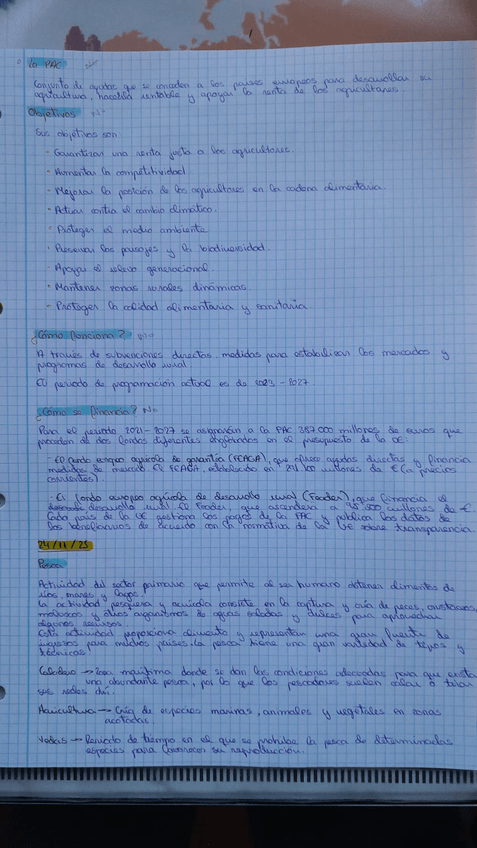 La PAC
Conjunto de ayudas que se conceden a los países europeos para desarrollar su
agricultura, hacerla rentable y apoyar la renta de los agricultores.
Objetivos
Sus objetivos son
- Garantizar una renta justa a los agricultores.
- Aumentar la competitividad
- Mejorar la posición de los agricultores en la cadena alimentaria.
- Actuar contra el cambio climático.
- Proteger el medio ambiente
- Preservar los paisajes y la biodiversidad.
- Apoyar el relevo generacional.
- Mantener zonas rurales dinámicas.
- Proteger la calidad alimentaria y sanitaria
¿Cómo funciona?
A través de subvenciones directas, medidas para estabilizar los mercados y
programas de desarrollo rural
El periodo de programación actual es de 2023-2027
¿Cómo se financia?
Para el periodo 2021-2027 se asignarán a la PAC 387.000 millones de euros que
procedan de dos fondos diferentes en el presupuesto de la UE:
- El fondo europeo agrícola de garantía (FEAGA), que ofrece ayudas directas y financia
medidas de mercado. El FEAGA, establecido en millones de € (a precios
corrientes).
- El fondo europeo agrícola de desarrollo rural (Feader), que financia el
desarrollo rural. El Feader, que ascenderá a millones de €
Cada país de la UE gestiona los pagos de la PAC y publica los datos de
los beneficiarios de acuerdo con la normativa de la UE sobre transparencia
24/11/25
Pesca
Actividad del sector primario que permite al ser humano obtener alimentos de
ríos, mares y lagos.
La actividad pesquera y acuícola consiste en la captura y cría de peces, crustáceos,
moluscos y otros organismos de aguas saladas y dulces para aprovechar
algunos recursos
Esta actividad proporciona alimento y representan una gran fuente de
ingresos para muchos países. La pesca tiene una gran variedad de tipos y
técnicas.
Caladero → Zona marítima donde se dan las condiciones adecuadas para que exista
una abundante pesca, por lo que los pescadores suelen calar o tirar
sus redes ahí
Acuicultura → Cría de especies marinas, animales y vegetales en zonas
acotadas
Vedas → Periodo de tiempo en el que se prohíbe la pesca de determinadas
especies para favorecer su reproducción.